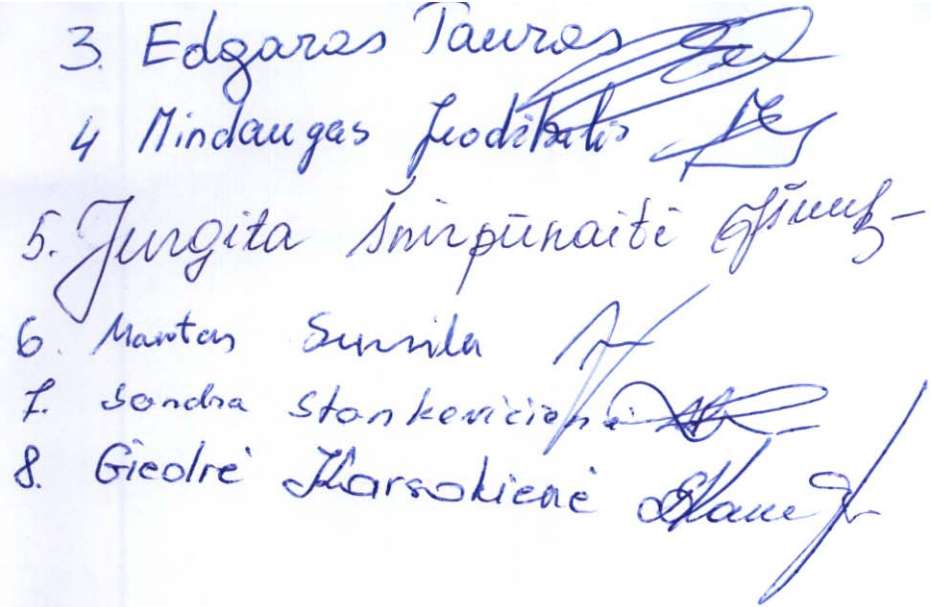 3. Edgaras Tauras
4 Mindaugas Juodikaitis
5. Jurgita Snirpūnaitė
6. Mantas
7. Sandra Stankevičienė
8. Giedrė Karsokienė